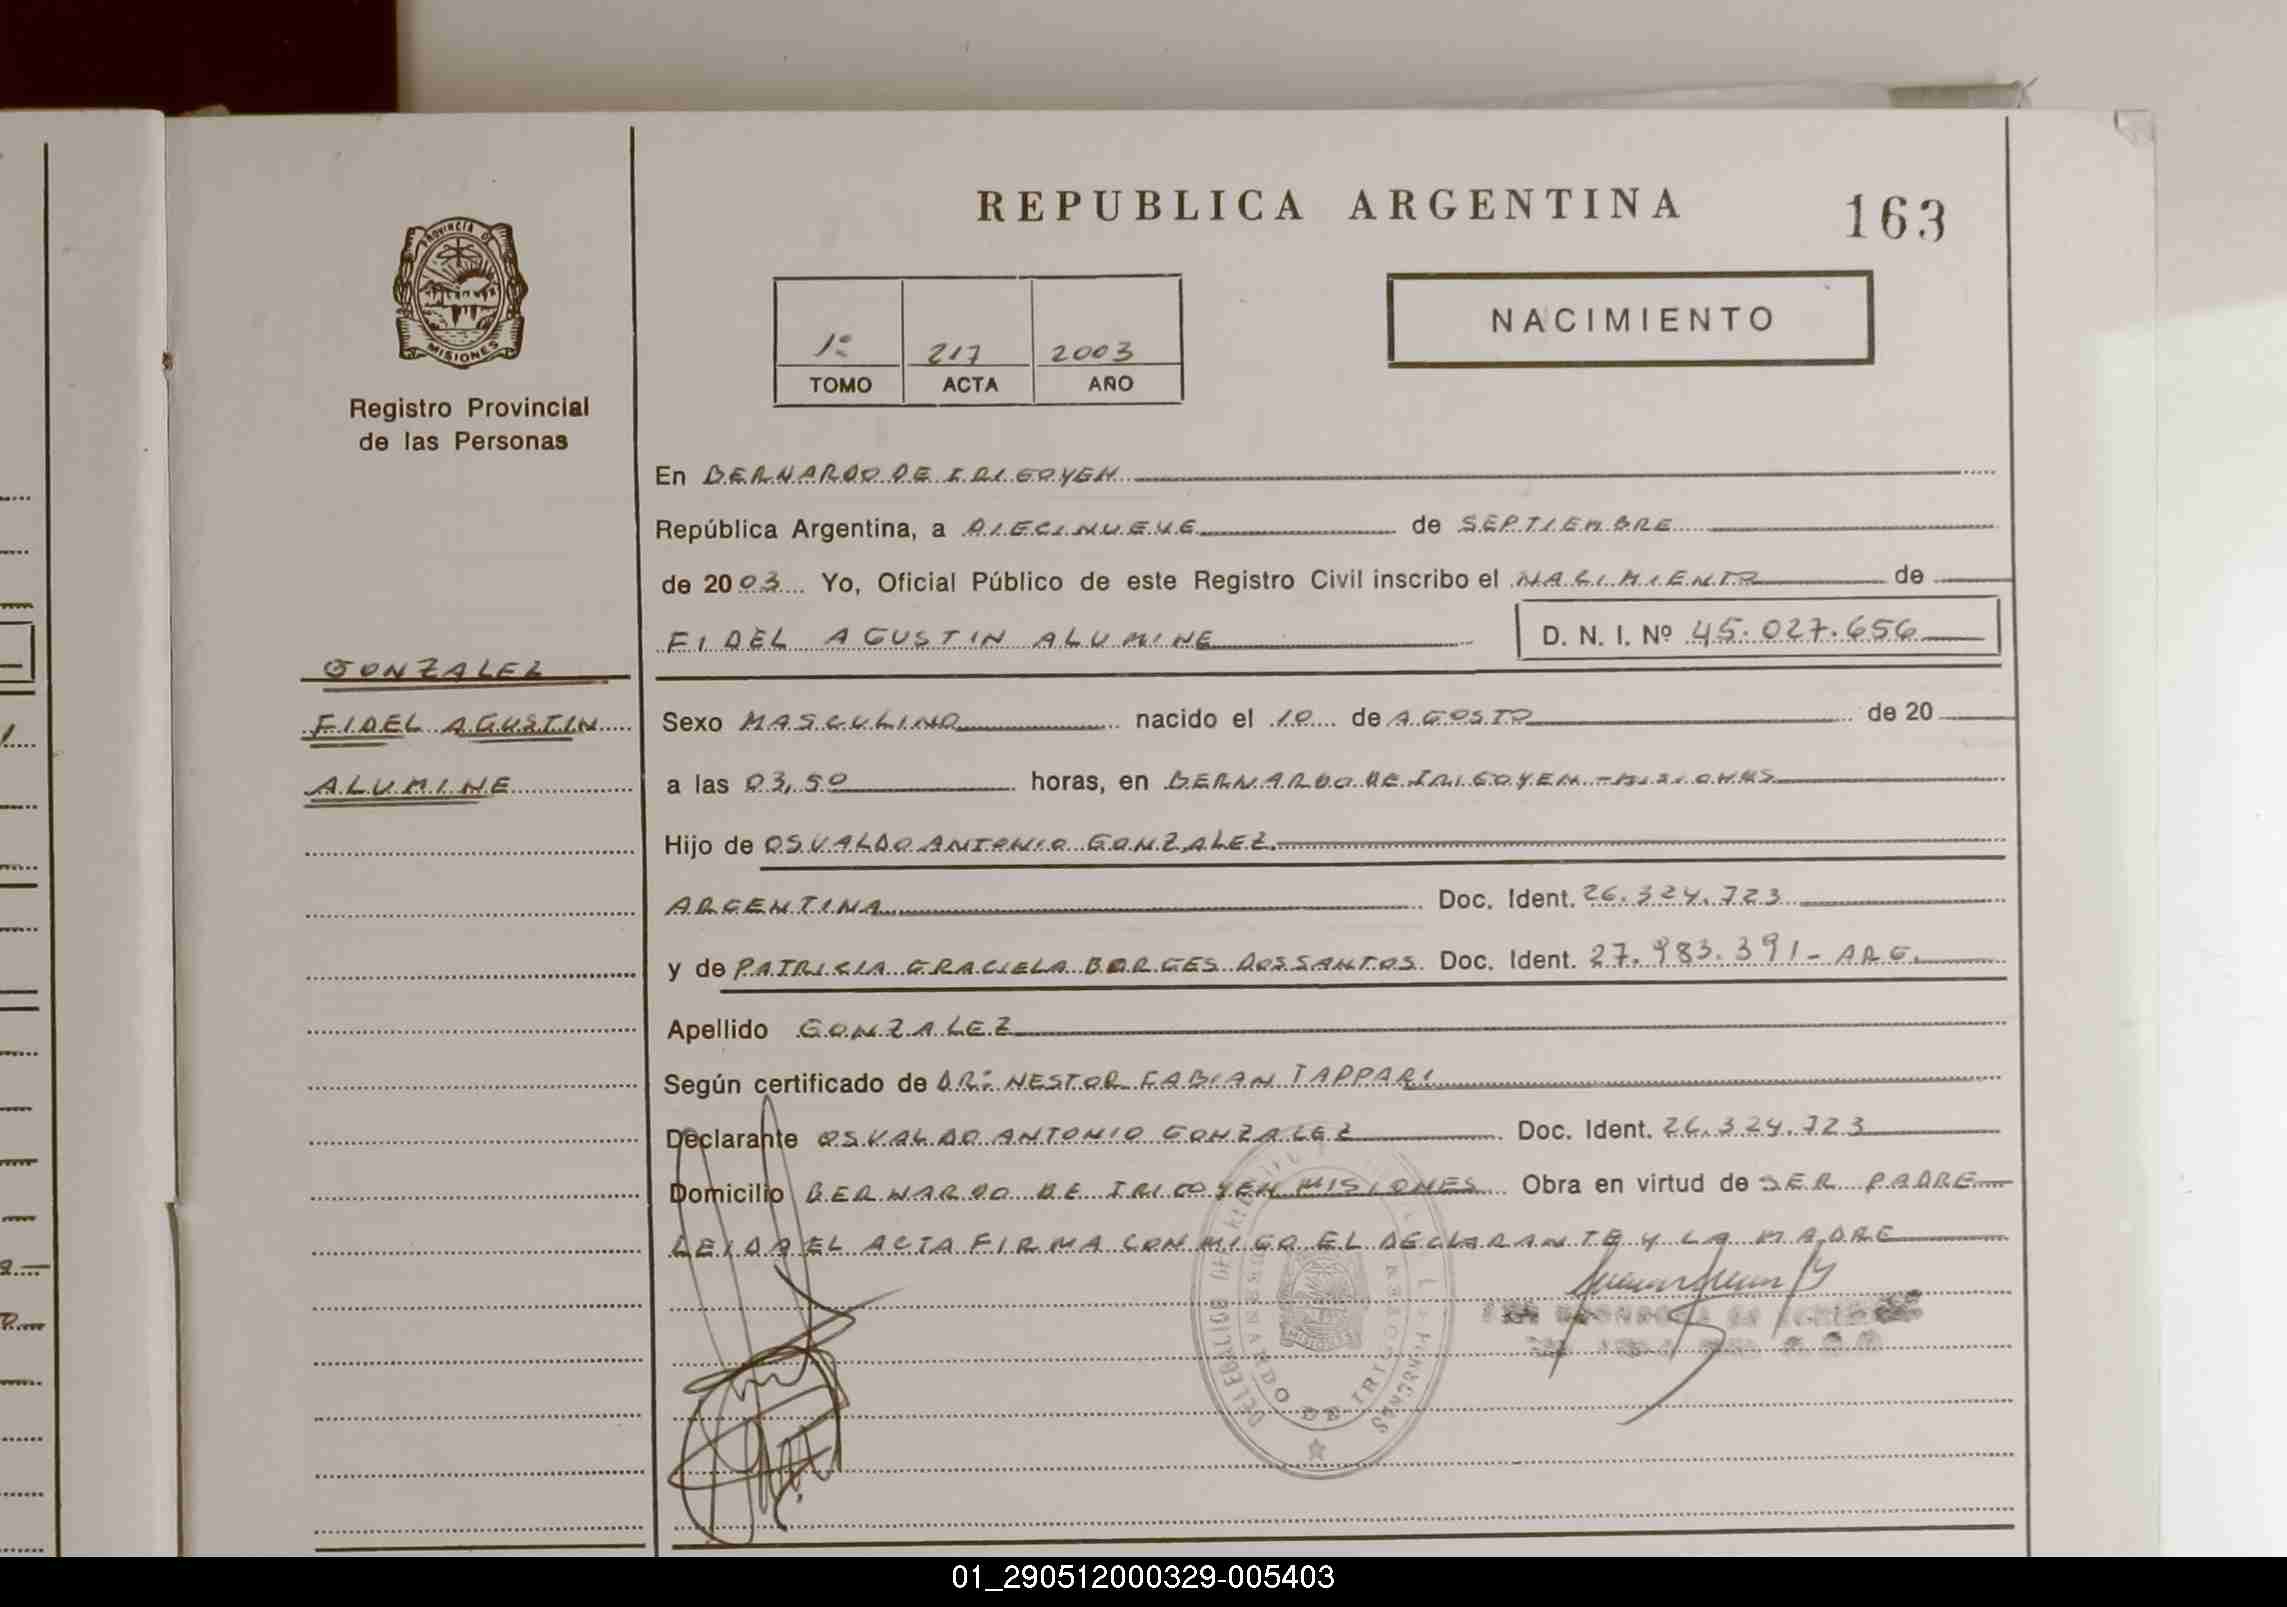 PROVINCIA DE
MISIONES
Registro Provincial
de las Personas
GONZALEZ
FIDEL AGUSTIN
ALUMINE
REPUBLICA ARGENTINA
163
1º 217 2003
TOMO ACTA AÑO
NACIMIENTO
En BERNARDO DE IRIGOYEN
República Argentina, a DIECINUEVE de SEPTIEMBRE
de 2003 Yo, Oficial Público de este Registro Civil inscribo el NACIMIENTO de
FIDEL AGUSTIN ALUMINE D. N. I. Nº 45.027.656
Sexo MASCULINO nacido el 10 de AGOSTO de 20
a las 03,50 horas, en BERNARDO DE IRIGOYEN - MISIONES
Hijo de OSVALDO ANTONIO GONZALEZ
ARGENTINA Doc. Ident. 26.324.723
y de PATRICIA GRACIELA BORGES DOS SANTOS Doc. Ident. 27.983.391 - ARG.
Apellido GONZALEZ
Según certificado de DR: NESTOR FABIAN TAPPARI
Declarante OSVALDO ANTONIO GONZALEZ Doc. Ident. 26.324.723
Domicilio BERNARDO DE IRIGOYEN MISIONES Obra en virtud de SER PADRE
LEIDA EL ACTA FIRMA CONMIGO EL DECLARANTE Y LA MADRE
BERNARDO DE IRIGOYEN
01_290512000329-005403